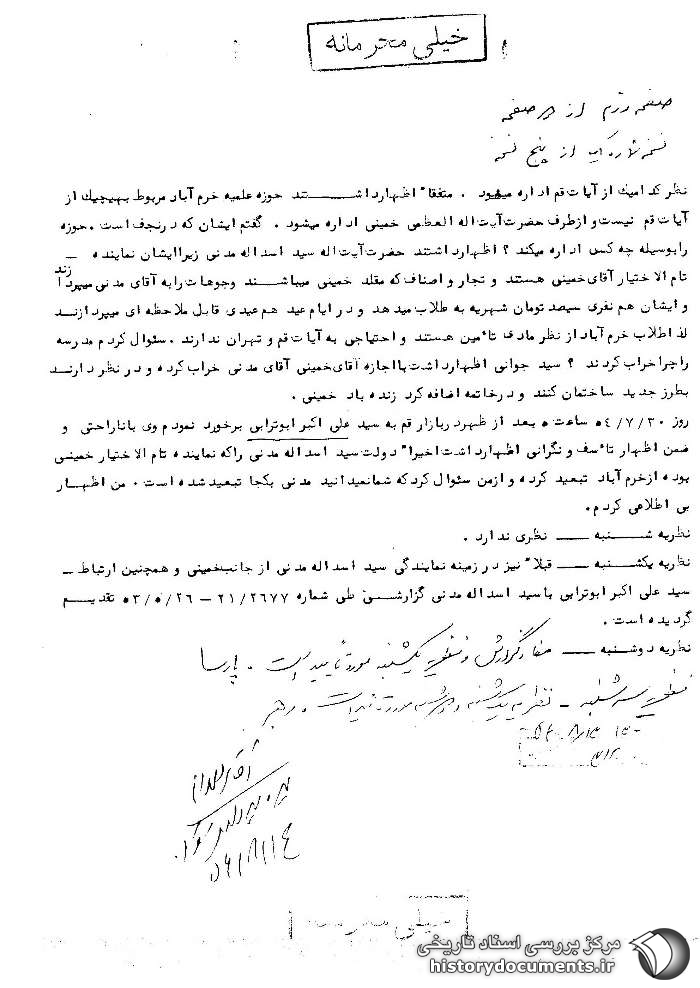 خیلی محرمانه
صفحه دوم از دو صفحه
نسخه شماره یک از پنج نسخه
نظر کدامیك از آیات قم اداره میشود . متفقا" اظهارداشـــــتند حوزه علمیه خرم آباد مربوط بهیچیك از
آیات قم نیست و ازطرف حضرت آیت اله العظمی خمینی اداره میشود . گفتم ایشان که درنجف است . حوزه
رابوسیله چه کس اداره میکند ؟ اظهارداشتند حضرت آیت اله سید اسداله مدنی زیراایشان نماینده ــ
تام الاختیار آقای خمینی هستند و تجار و اصناف که مقلد خمینی میباشـــند وجوهات رابه آقای مدنی میپردازند
و ایشان هم نفری سیصد تومان شهریه به طلاب میدهد و در ایام عید هم عیدی قابل ملاحظه ای میپردازنـــد
لذ اطلاب خرم آباد از نظر مادی تا"مین هستند و احتیاجی به آیات قم و تهران ندارند . سئوال کردم مدرسه
راچراخراب کردند ؟ سید جوانی اظهارداشت بااجازه آقای خمینی آقای مدنی خراب کرده و در نظر دارنــد
بطرز جدید ساختمان کنند و درخاتمه اضافه کرد زنده باد خمینی .
روز ۵۴/۷/۳۰ ساعت ۵ بعد از ظهر دربازار قم به سید علی اکبر ابوترابی برخورد نمودم وی باناراحتی و
ضمن اظهار تا"سف و نگرانی اظهارداشت اخیرا" دولت سید اسداله مدنی راکه نماینده تام الاختیار خمینی
بوده ازخرم آباد تبعید کرده و ازمن سئوال کرد که شمانمیدانید مدنی بکجا تبعید شده است . من اظهــار
بی اطلاعی کردم .
نظریه شـــنبه ـــــ نظری ندارد .
نظریه یکشنبه ـــــ قبلا" نیز در زمینه نمایندگی سید اسداله مدنی از جانب خمینی و همچنین ارتباط ــ
سید علی اکبر ابوترابی با سید اسداله مدنی گزارشـــی طی شماره ۲۱/۲۶۷۷ ــ ۵۳/۵/۲۶ تقدیـــم
گردیده است .
نظریه دوشنبه ـــــ مفاد گزارش و نظریه یکشنبه مورد تأیید است . پارسا
نظریه سه شنبه ـ نظریه یکشنبه و دوشنبه مورد تأیید است . رهبر
۵۴/۸/۱۴
مرکز بررسی اسناد تاریخی
historydocuments.ir